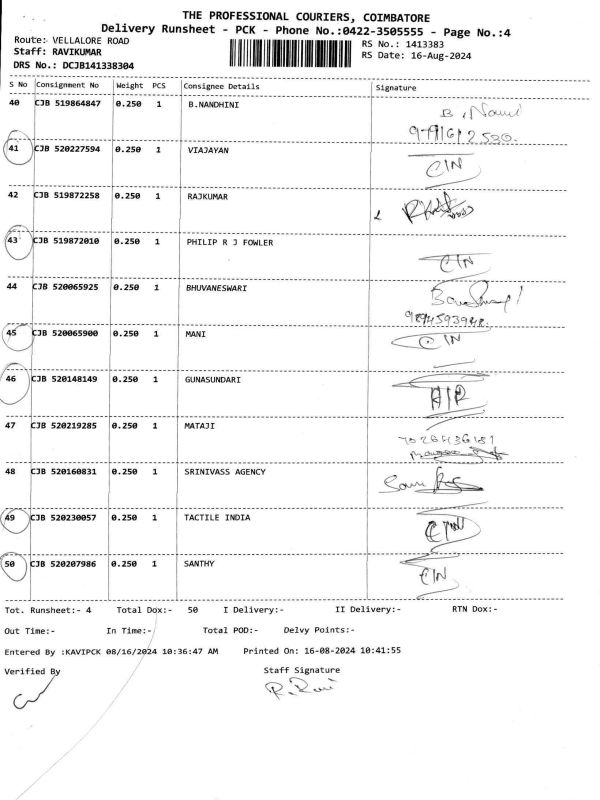 THE PROFESSIONAL COURIERS, COIMBATORE
Delivery Runsheet - PCK - Phone No.:0422-3505555 - Page No.:4
Route: VELLALORE ROAD
RS No.: 1413383
Staff: RAVIKUMAR
RS Date: 16-Aug-2024
DRS No.: DCJB141338304
S No Consignment No Weight PCS Consignee Details Signature
40 CJB 519864847 0.250 1 B.NANDHINI
41 CJB 520227594 0.250 1 VIAJAYAN CIN
42 CJB 519872258 0.250 1 RAJKUMAR
43 CJB 519872010 0.250 1 PHILIP R J FOWLER CIN
44 CJB 520065925 0.250 1 BHUVANESWARI
45 CJB 520065900 0.250 1 MANI CIN
46 CJB 520148149 0.250 1 GUNASUNDARI
47 CJB 520219285 0.250 1 MATAJI
48 CJB 520160831 0.250 1 SRINIVASS AGENCY
49 CJB 520230057 0.250 1 TACTILE INDIA CIN
50 CJB 520207986 0.250 1 SANTHY CIN
Tot. Runsheet:- 4 Total Dox:- 50 I Delivery:- II Delivery:- RTN Dox:-
Out Time:- In Time:- Total POD:- Delvy Points:-
Entered By :KAVIPCK 08/16/2024 10:36:47 AM Printed On: 16-08-2024 10:41:55
Verified By Staff Signature
R. Ravi